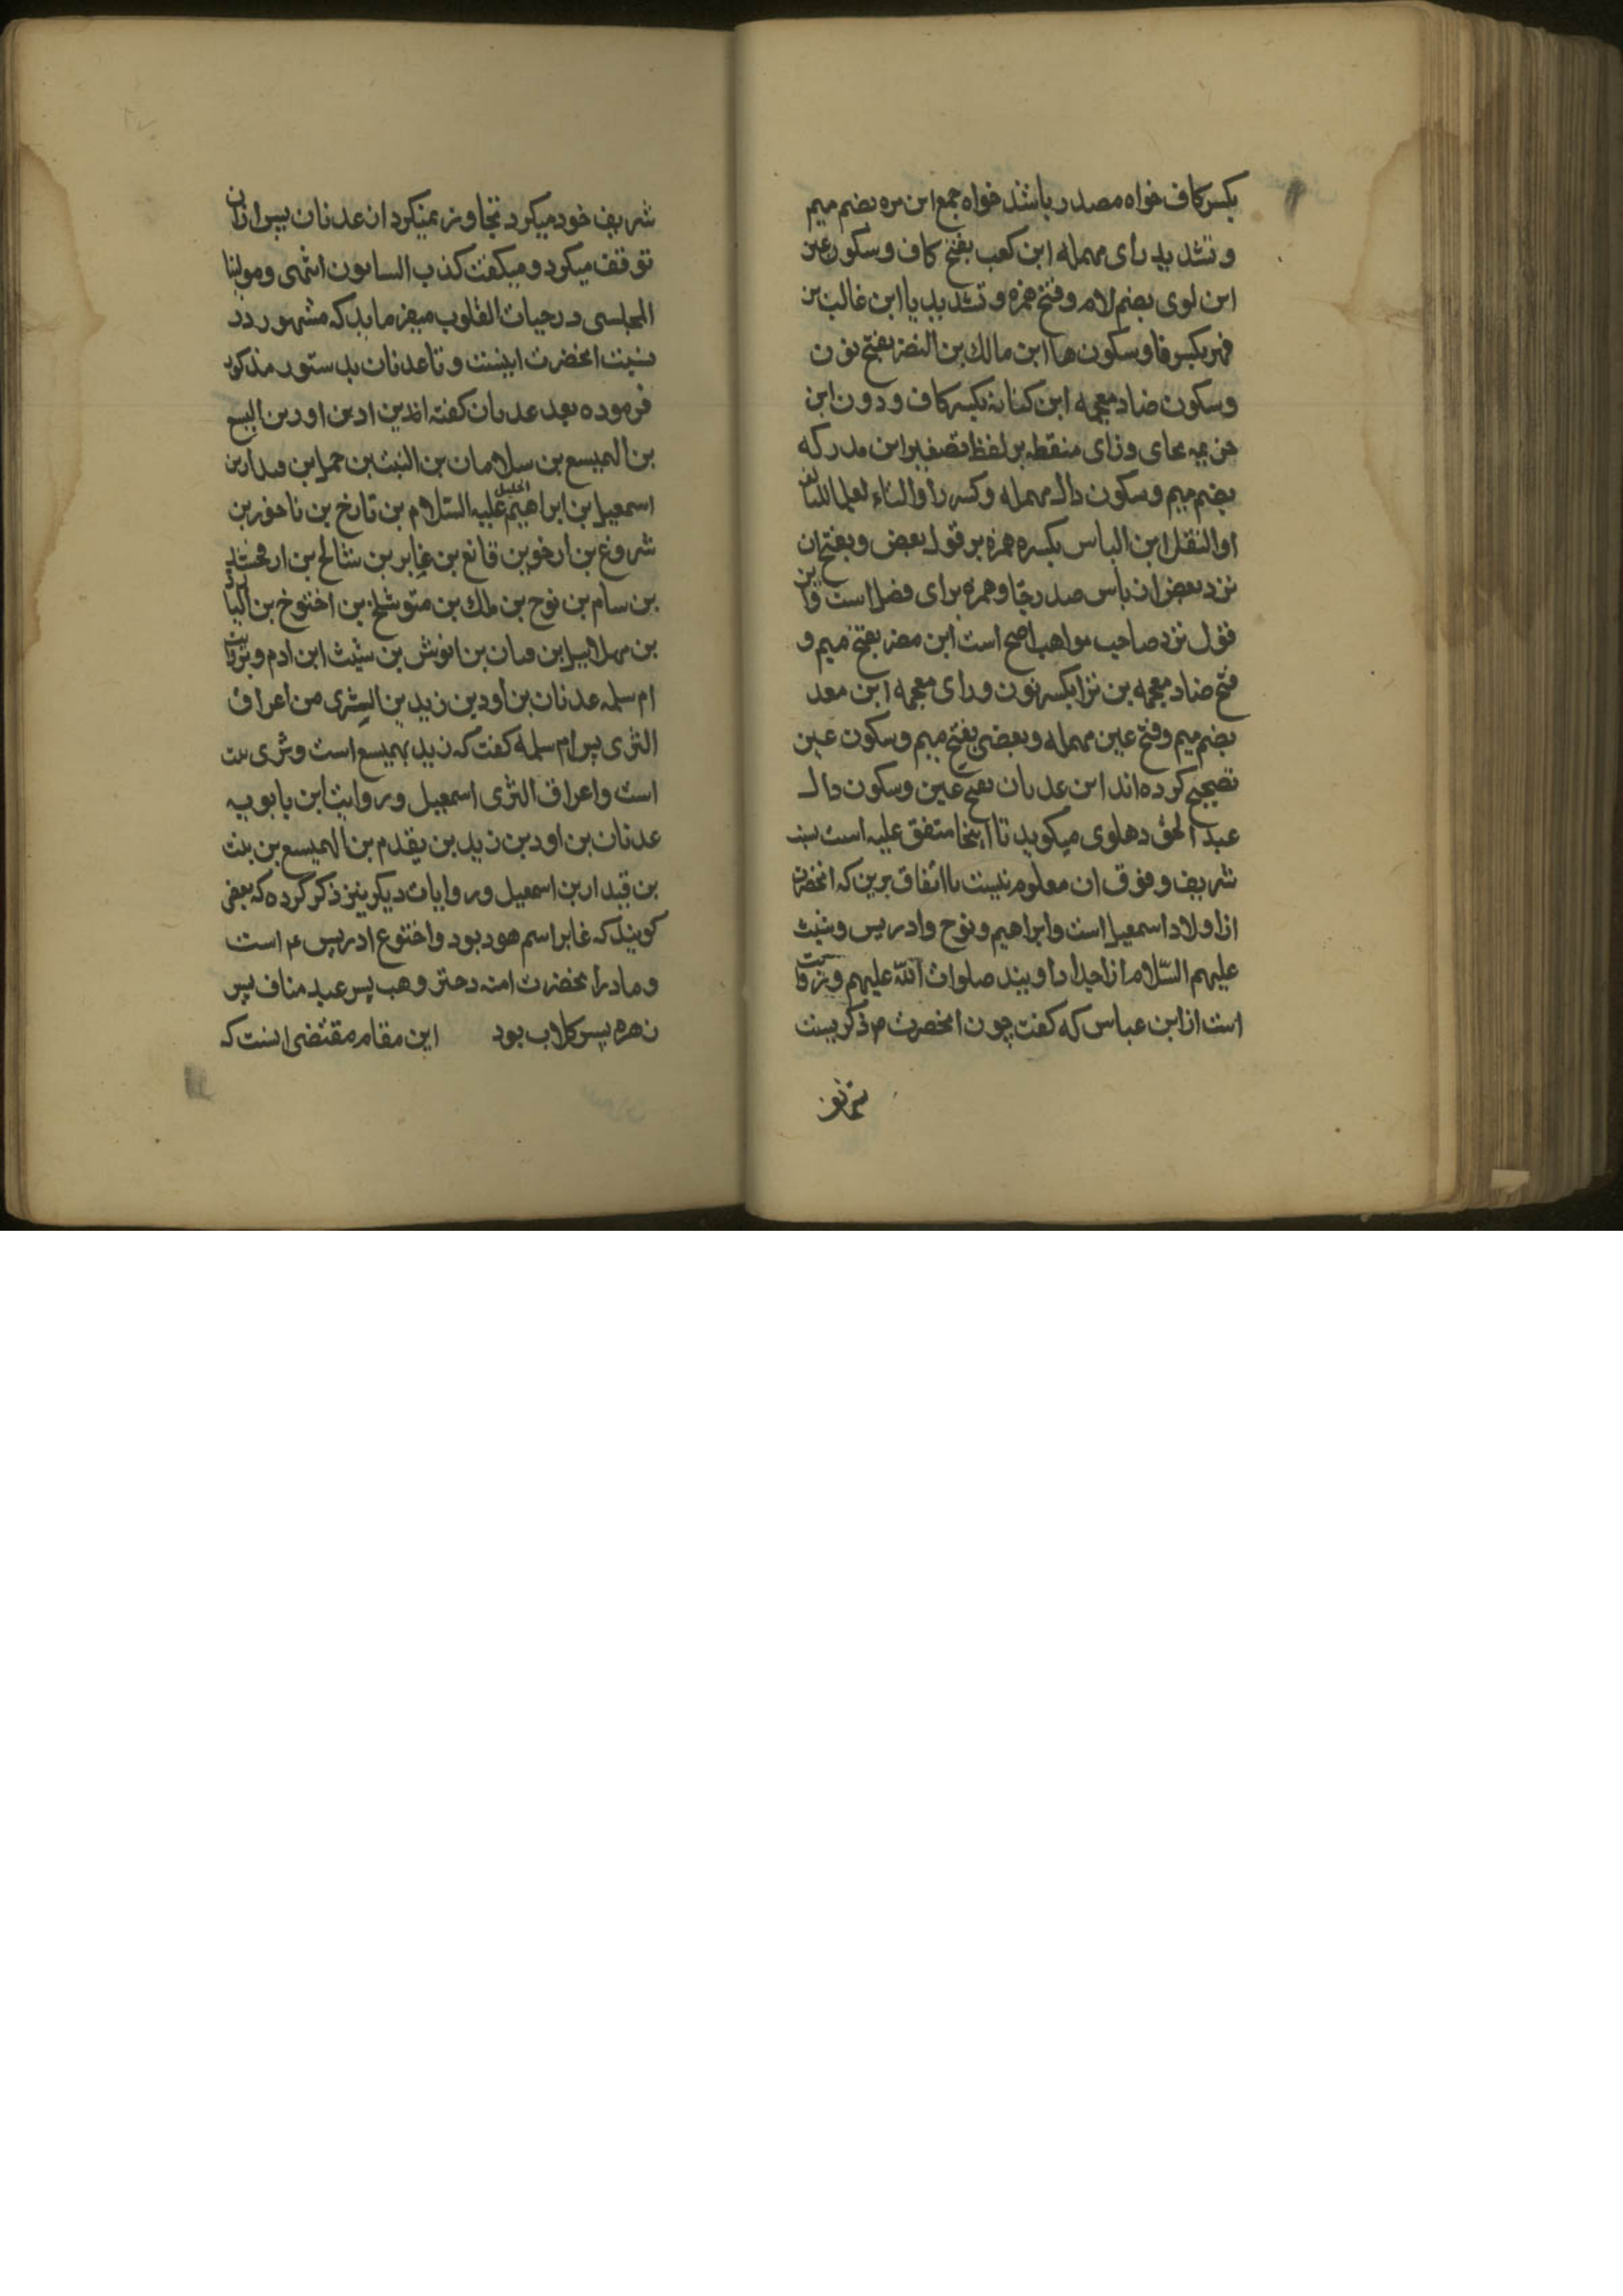 بکسر کاف خواه مصدر باشد خواه جمع ابن مره بضم میم
و تشدید رای مهمله ابن کعب بفتح کاف و سکون عین
ابن لوی بضم لام و فتح همزه و تشدید یا ابن غالب بن
فهر بکسر فا و سکون ها ابن مالك بن النضر بفتح نون
وسکون ضاد معجمه ابن کنانه بکسر کاف و دون ابن
خزیمه بخای و زای منقطه بر لفظ تصغیر ابن مدرکه
بضم میم و سکون دال مهمله و کسر را والتاء لعلها للمبالغه
او النقل ابن الیاس بکسره همزه بر قول بعض و بفتح ان
نزد بعض ان یاس صد رجا و همزه برای فضل است و این
قول نزد صاحب مواهب اصح است ابن مضر بفتح میم و
فتح ضاد معجمه بن نزا بکسر نون و رای معجمه ابن معد
بضم میم و فتح عین مهمله و بعضی بفتح میم و سکون عین
تصحیح کرده اند ابن عدنان بفتح عین وسکون دال
عبد الحق دهلوی میکوید تا اینجا متفق علیه است نسب
شریف و فوق ان معلوم نیست با اتفاق برین که انحضرت
از اولاد اسمعیل است و ابراهیم و نوح و ادریس و شیث
علیهم السّلام از اجداد اویند صلوات اللّه علیهم و روایت
است از ابن عباس که کفت چون انحضرت م ذکر نسبت
شریف
شریف خود میکرد تجاوز نمیکرد از عدنان پس ازان
توقف میکرد و میکفت کذب السابون انتهی و مولینا
المجلسی در حیات القلوب میفرماید که مشهور در
نسبت انحضرت اینست و تا عدنان بدستور مذکور
فرموده بعد عدنان کفته اند بن اد بن اود بن الیسع
بن الهمیسع بن سلامان بن النبت بن حمل بن قیدار بن
اسمعیل بن ابراهیم الخلیل علیه السّلام بن تارخ بن ناحور بن
شروغ بن ارخو بن قانع بن غابر بن شالخ بن ارفحشد
بن سام بن نوح بن ملك بن متوشلخ بن اختوخ بن الیارد
بن مهلاییل بن قینان بن انوش بن شیث ابن ادم و بروایت
ام سلمه عدنان بن اود بن زید بن الثری من اعراق
الثری پس ام سلمه کفت که زید همیسع است و ثری نبت
است و اعراق الثری اسمعیل و روایت ابن بابویه
عدنان بن اود بن زید بن یقدم بن الهمیسع بن نبت
بن قیدار بن اسمعیل و روایات دیکر نیز ذکر کرده که بعضی
کویند که غابر اسم هود بود و اختوع ادریس ع است
و مادر انحضرت امنه دختر وهب پسر عبد مناف پسر
زهره پسر کلاب بود این مقام مقتضی انست که